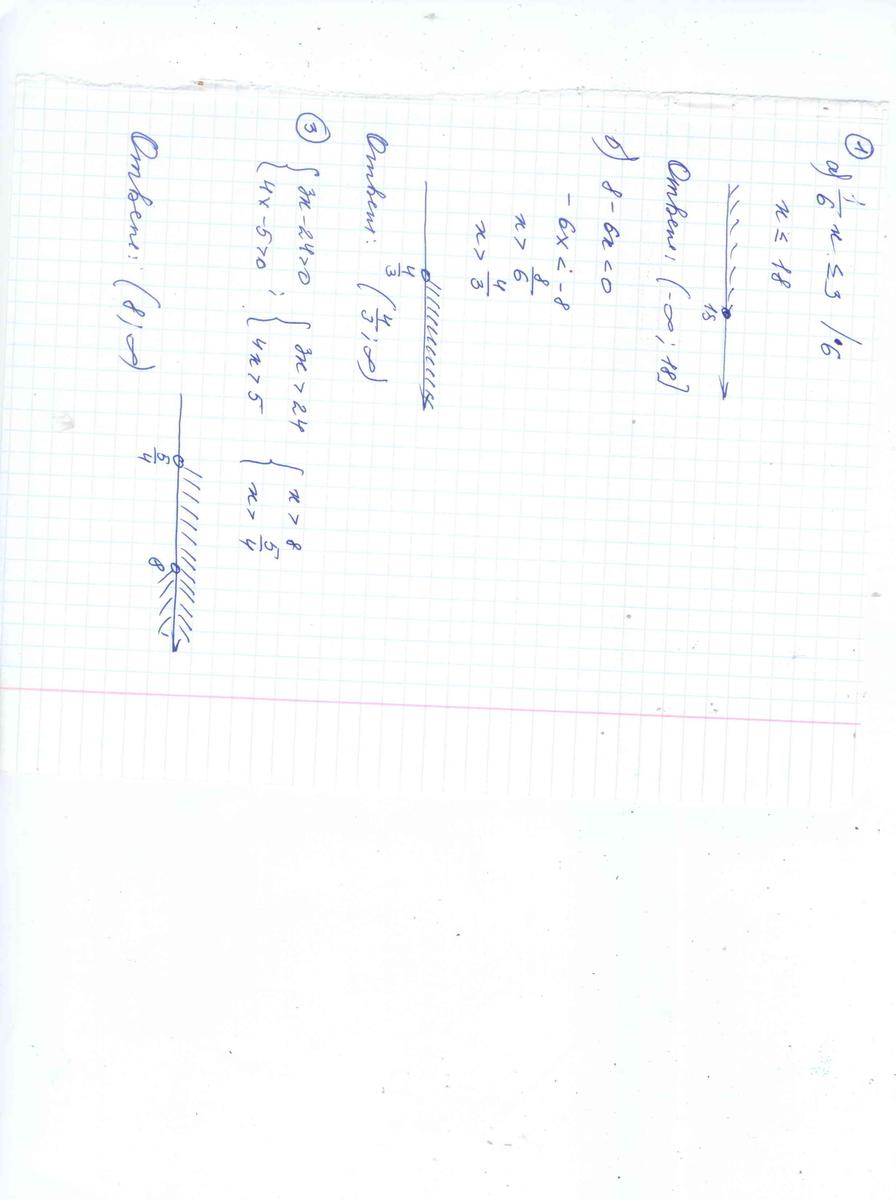 ① а) 1/6 x ≤ 3 /·6
x ≤ 18
18
Ответ: (-∞; 18]
б) 8 - 6x < 0
-6x < -8
x > 8/6
x > 4/3
4/3
Ответ: (4/3; ∞)
③ { 3x - 24 > 0 { 3x > 24 { x > 8
{ 4x - 5 > 0 ; { 4x > 5 { x > 5/4
5/4 8
Ответ: (8; ∞)